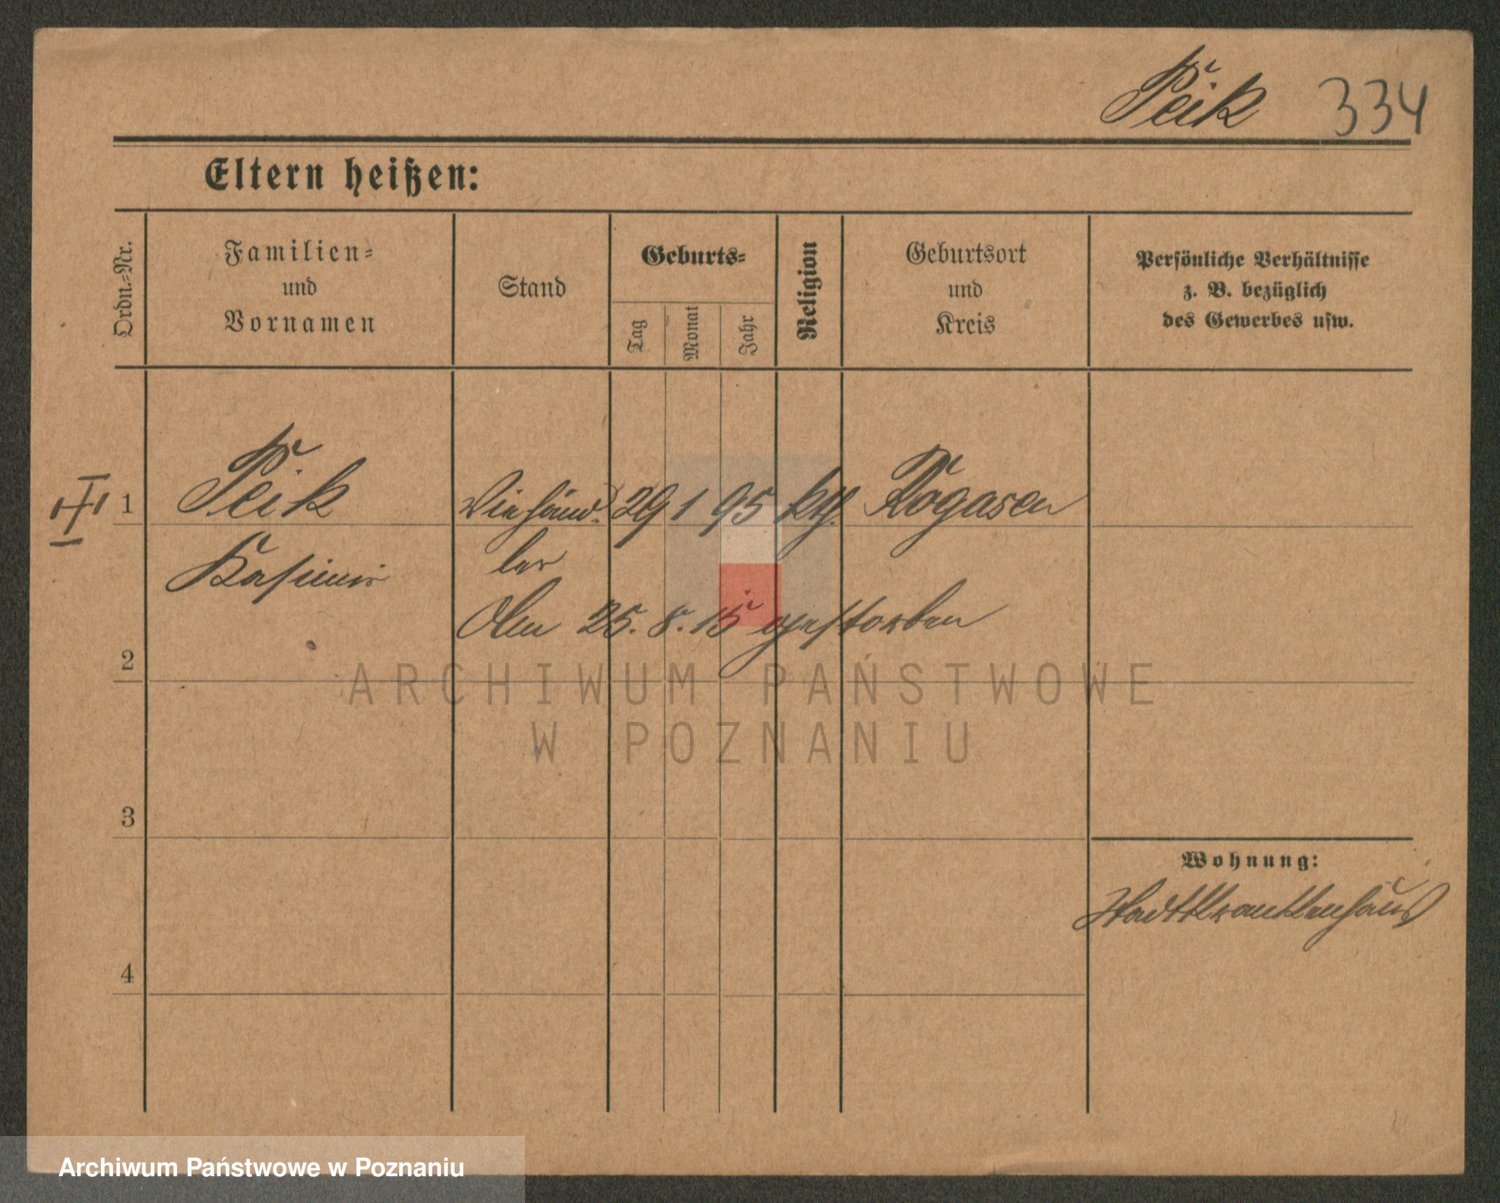 Peik 334
Eltern heißen:
Ordn.-Nr.
Familien-
und
Vornamen
Stand
Geburts-
Tag
Monat
Jahr
Religion
Geburtsort
und
Kreis
Persönliche Verhältnisse
z. B. bezüglich
des Gewerbes usw.
1 Peik Viehänd- 29 1 95 kth. Rogasen
Kasimir ler
Am 25. 8. 15 gestorben
2
ARCHIWUM PAŃSTWOWE
W POZNANIU
3
Wohnung:
Stadtkrankenhaus
4
Archiwum Państwowe w Poznaniu